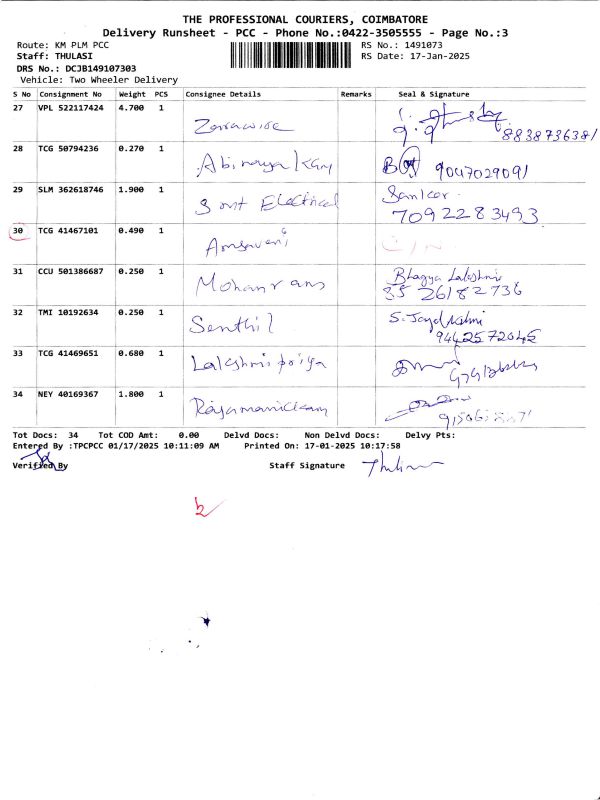 THE PROFESSIONAL COURIERS, COIMBATORE
Delivery Runsheet - PCC - Phone No.:0422-3505555 - Page No.:3
Route: KM PLM PCC RS No.: 1491073
Staff: THULASI RS Date: 17-Jan-2025
DRS No.: DCJB149107303
Vehicle: Two Wheeler Delivery
S No Consignment No Weight PCS Consignee Details Remarks Seal & Signature
27 VPL 522117424 4.700 1
8838736381
28 TCG 50794236 0.270 1 Abinaya 9047029091
29 SLM 362618746 1.900 1 Electrical Sankar
7092283493
30 TCG 41467101 0.490 1 Amsaveni
31 CCU 501386687 0.250 1 Mohanram Bhagya Lakshmi
35 26182736
32 TMI 10192634 0.250 1 Senthil S. Jayalakshmi
9442572045
33 TCG 41469651 0.680 1 Lakshmipriya
34 NEY 40169367 1.800 1 Rajamanickam
Tot Docs: 34 Tot COD Amt: 0.00 Delvd Docs: Non Delvd Docs: Delvy Pts:
Entered By :TPCPCC 01/17/2025 10:11:09 AM Printed On: 17-01-2025 10:17:58
Verified By Staff Signature